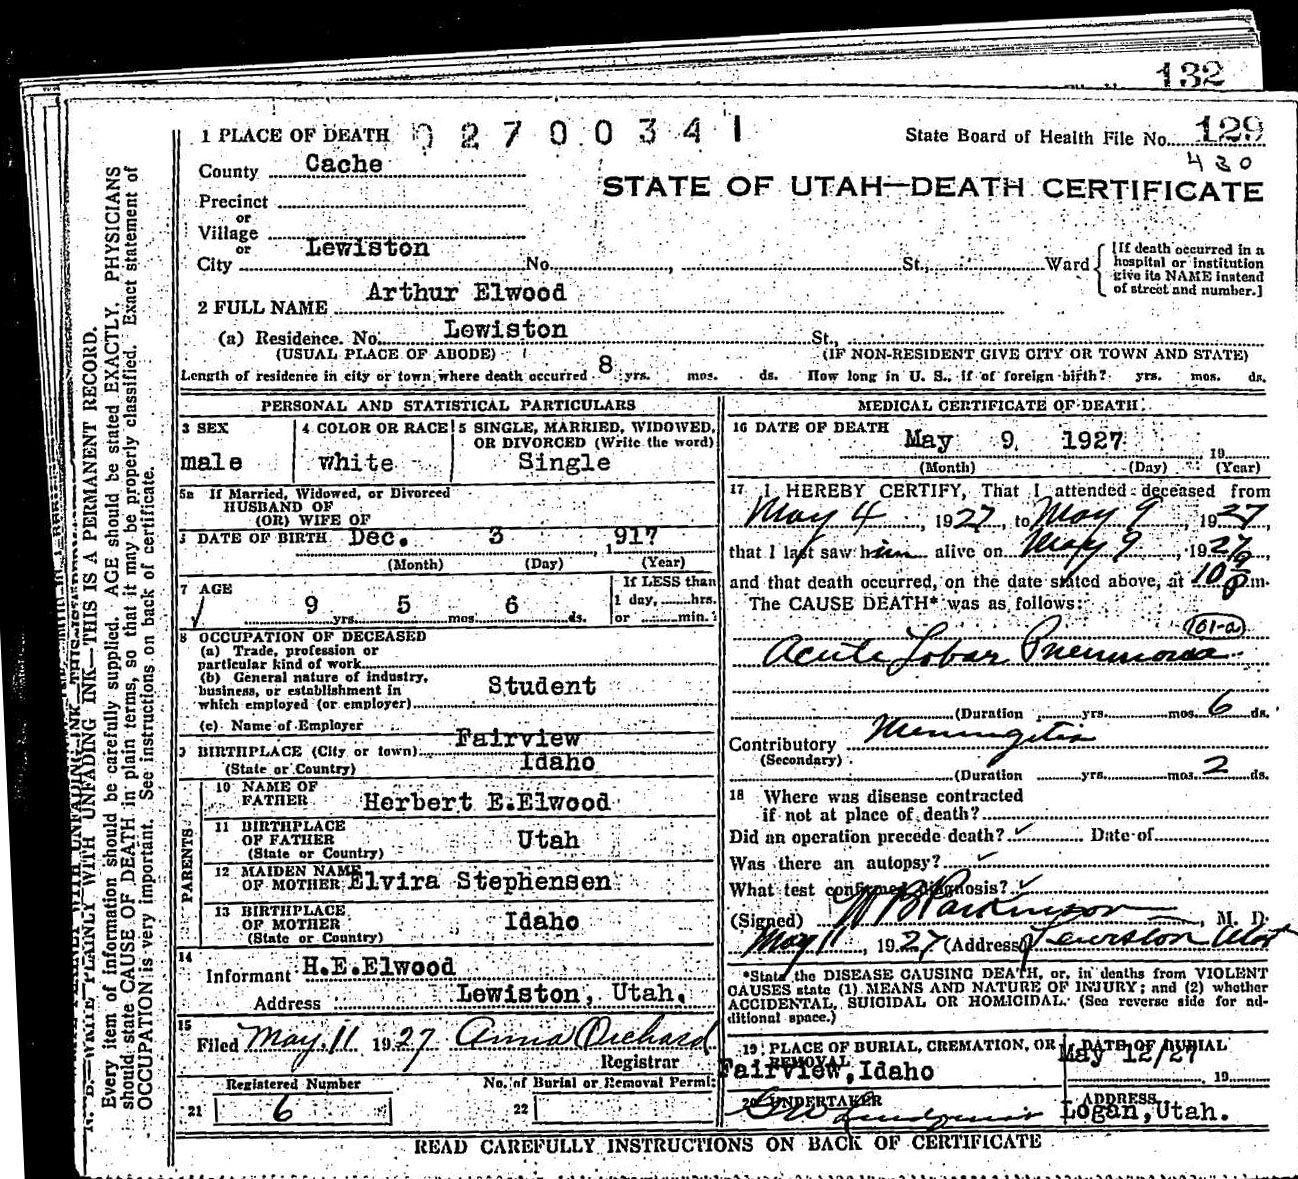 132
1 PLACE OF DEATH 02700341
State Board of Health File No. 129
430
County Cache
STATE OF UTAH—DEATH CERTIFICATE
Precinct
or
Village
or
City Lewiston No. , St., Ward
[If death occurred in a
hospital or institution
give its NAME instead
of street and number.]
2 FULL NAME Arthur Elwood
(a) Residence. No. Lewiston St.,
(USUAL PLACE OF ABODE) (IF NON-RESIDENT GIVE CITY OR TOWN AND STATE)
Length of residence in city or town where death occurred 8 yrs. mos. ds. How long in U. S., if of foreign birth? yrs. mos. ds.
PERSONAL AND STATISTICAL PARTICULARS
3 SEX male
4 COLOR OR RACE white
5 SINGLE, MARRIED, WIDOWED,
OR DIVORCED (Write the word)
Single
5a If Married, Widowed, or Divorced
HUSBAND OF
(OR) WIFE OF
DATE OF BIRTH Dec. 3 , 1917
(Month) (Day) (Year)
7 AGE
9 yrs. 5 mos. 6 ds.
If LESS than
1 day, hrs.
or min.
8 OCCUPATION OF DECEASED
(a) Trade, profession or
particular kind of work
(b) General nature of industry,
business, or establishment in
which employed (or employer) Student
(c) Name of Employer
9 BIRTHPLACE (City or town) Fairview
(State or Country) Idaho
PARENTS
10 NAME OF
FATHER Herbert E.Elwood
11 BIRTHPLACE
OF FATHER Utah
(State or Country)
12 MAIDEN NAME
OF MOTHER Elvira Stephensen
13 BIRTHPLACE
OF MOTHER Idaho
(State or Country)
14
Informant H.E.Elwood
Address Lewiston, Utah.
15
Filed May 11 1927 Anna Orchard
Registrar
Registered Number
21 6
No. of Burial or Removal Permit
22
MEDICAL CERTIFICATE OF DEATH
16 DATE OF DEATH May 9 1927 19
(Month) (Day) (Year)
17 I HEREBY CERTIFY, That I attended deceased from
May 4 , 1927, to May 9 , 1927,
that I last saw him alive on May 9 , 1927,
and that death occurred, on the date stated above, at 10 P m.
The CAUSE DEATH* was as follows:
101-a
Acute Lobar Pneumonia
(Duration yrs. mos. 6 ds.
Contributory Meningitis
(Secondary)
(Duration yrs. mos. 2 ds.
18 Where was disease contracted
if not at place of death?
Did an operation precede death? ✓ Date of
Was there an autopsy? ✓
What test confirmed diagnosis? ✓
(Signed) W B Parkinson , M. D.
May 11 , 1927 (Address) Lewiston Utah
*State the DISEASE CAUSING DEATH, or, in deaths from VIOLENT
CAUSES state (1) MEANS AND NATURE OF INJURY; and (2) whether
ACCIDENTAL, SUICIDAL OR HOMICIDAL. (See reverse side for ad-
ditional space.)
19 PLACE OF BURIAL, CREMATION, OR
REMOVAL
Fairview, Idaho
DATE OF BURIAL
May 12/27
19
20 UNDERTAKER
ADDRESS
Logan,Utah.
READ CAREFULLY INSTRUCTIONS ON BACK OF CERTIFICATE
WRITE PLAINLY WITH UNFADING INK—THIS IS A PERMANENT RECORD.
Every item of information should be carefully supplied. AGE should be stated EXACTLY. PHYSICIANS
should state CAUSE OF DEATH in plain terms, so that it may be properly classified. Exact statement of
OCCUPATION is very important. See instructions on back of certificate.